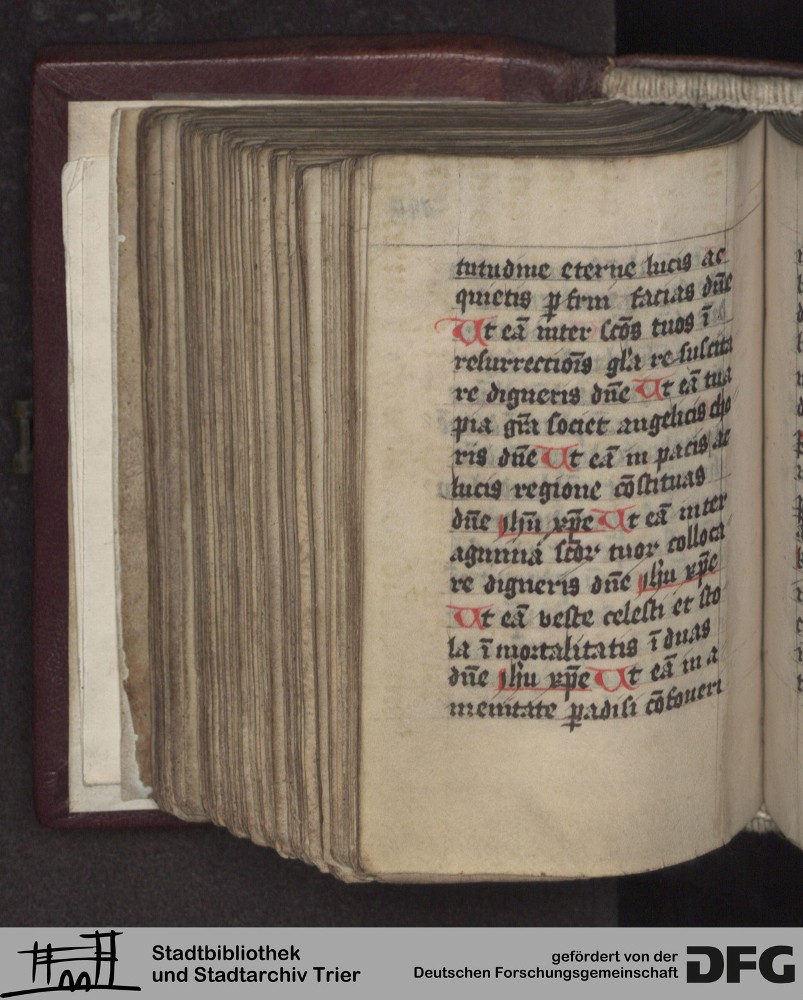 tutudine eterne lucis ac
quietis ꝑfrui facias dñe
Ut eā inter scōs tuos ī
resurrectiōis gl'a resuscita
re digneris dñe Ut eā tua
pia grā societ angelicis cho
ris dñe Ut eā in pacis ac
lucis regione cōstituas
dñe ihū xp̄e Ut eā inter
agmina scōꝝ tuoꝝ colloca
re digneris dñe ihū xp̄e
Ut eā veste celesti et sto
la īmortalitatis īduas
dñe ihū xp̄e Ut eā in a
menitate ꝑadisi cōfoueri
Stadtbibliothek
und Stadtarchiv Trier
gefördert von der
Deutschen Forschungsgemeinschaft
DFG